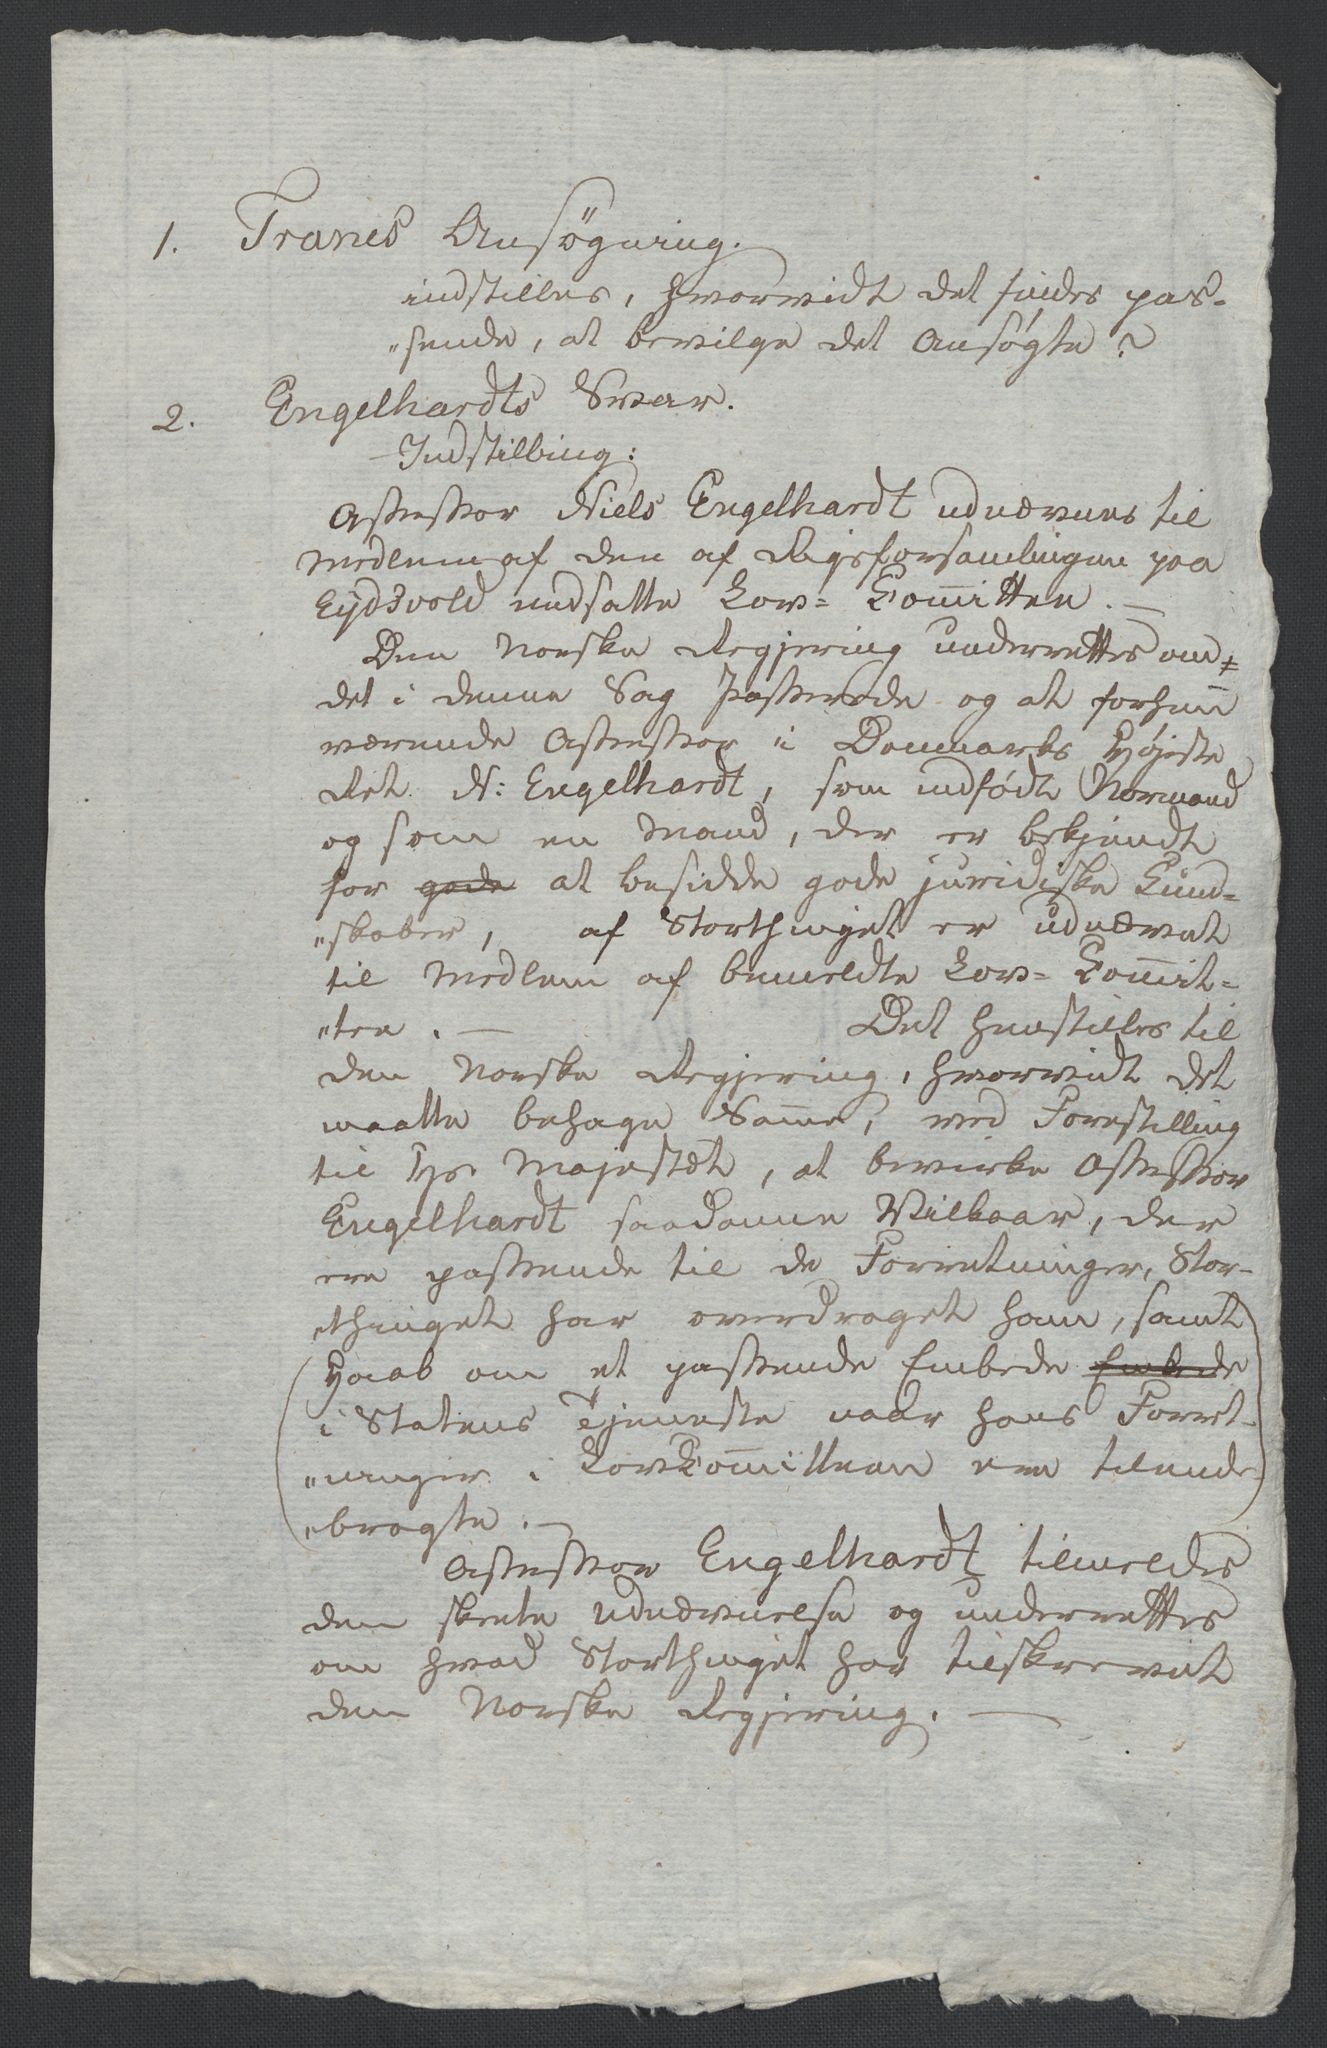 1. Tranes Ansögning.
indstilles, hvorvidt det findes pas-
"sende, at bevilge det Ansøgte?
2. Engelhardts Svar.
Indstilling:
Assessor Niels Engelhardt udnævnes til
Medlem af den af Rigsforsamlingen paa
Eydsvold nedsatte Lov= Committee. —
Den Norske Regjering underrettes om
det i denne Sag Passerede og at forhen
værende Assessor i Danmarks Højeste
Ret N: Engelhardt, som indfødt Normand
og som en Mand, der er bekjendt
for gode at besidde gode juridiske Kund=
"skaber, af Storthinget er udnævnt
til Medlem af bemeldte Lov= Commit=
"tee. — Det henstilles til
den Norske Regjering, hvorvidt det
maatte behage Samme, ved Forestilling
til Hs Majestæt, at bevirke Assessor
Engelhardt saadanne Vilkaar, der
ere passende til de Forretninger, Stor-
"thinget har overdraget ham, samt
Haab om et passende Embede Embede
i Statens Tjeneste naar hans Forret-
"ninger i Lov Committeen ere tilende-
"bragte. —
Assessor Engelhardt tilmeldes
den skeete Udnævnelse og underrettes
om hvad Storthinget har tilskrevet
den Norske Regjering. —